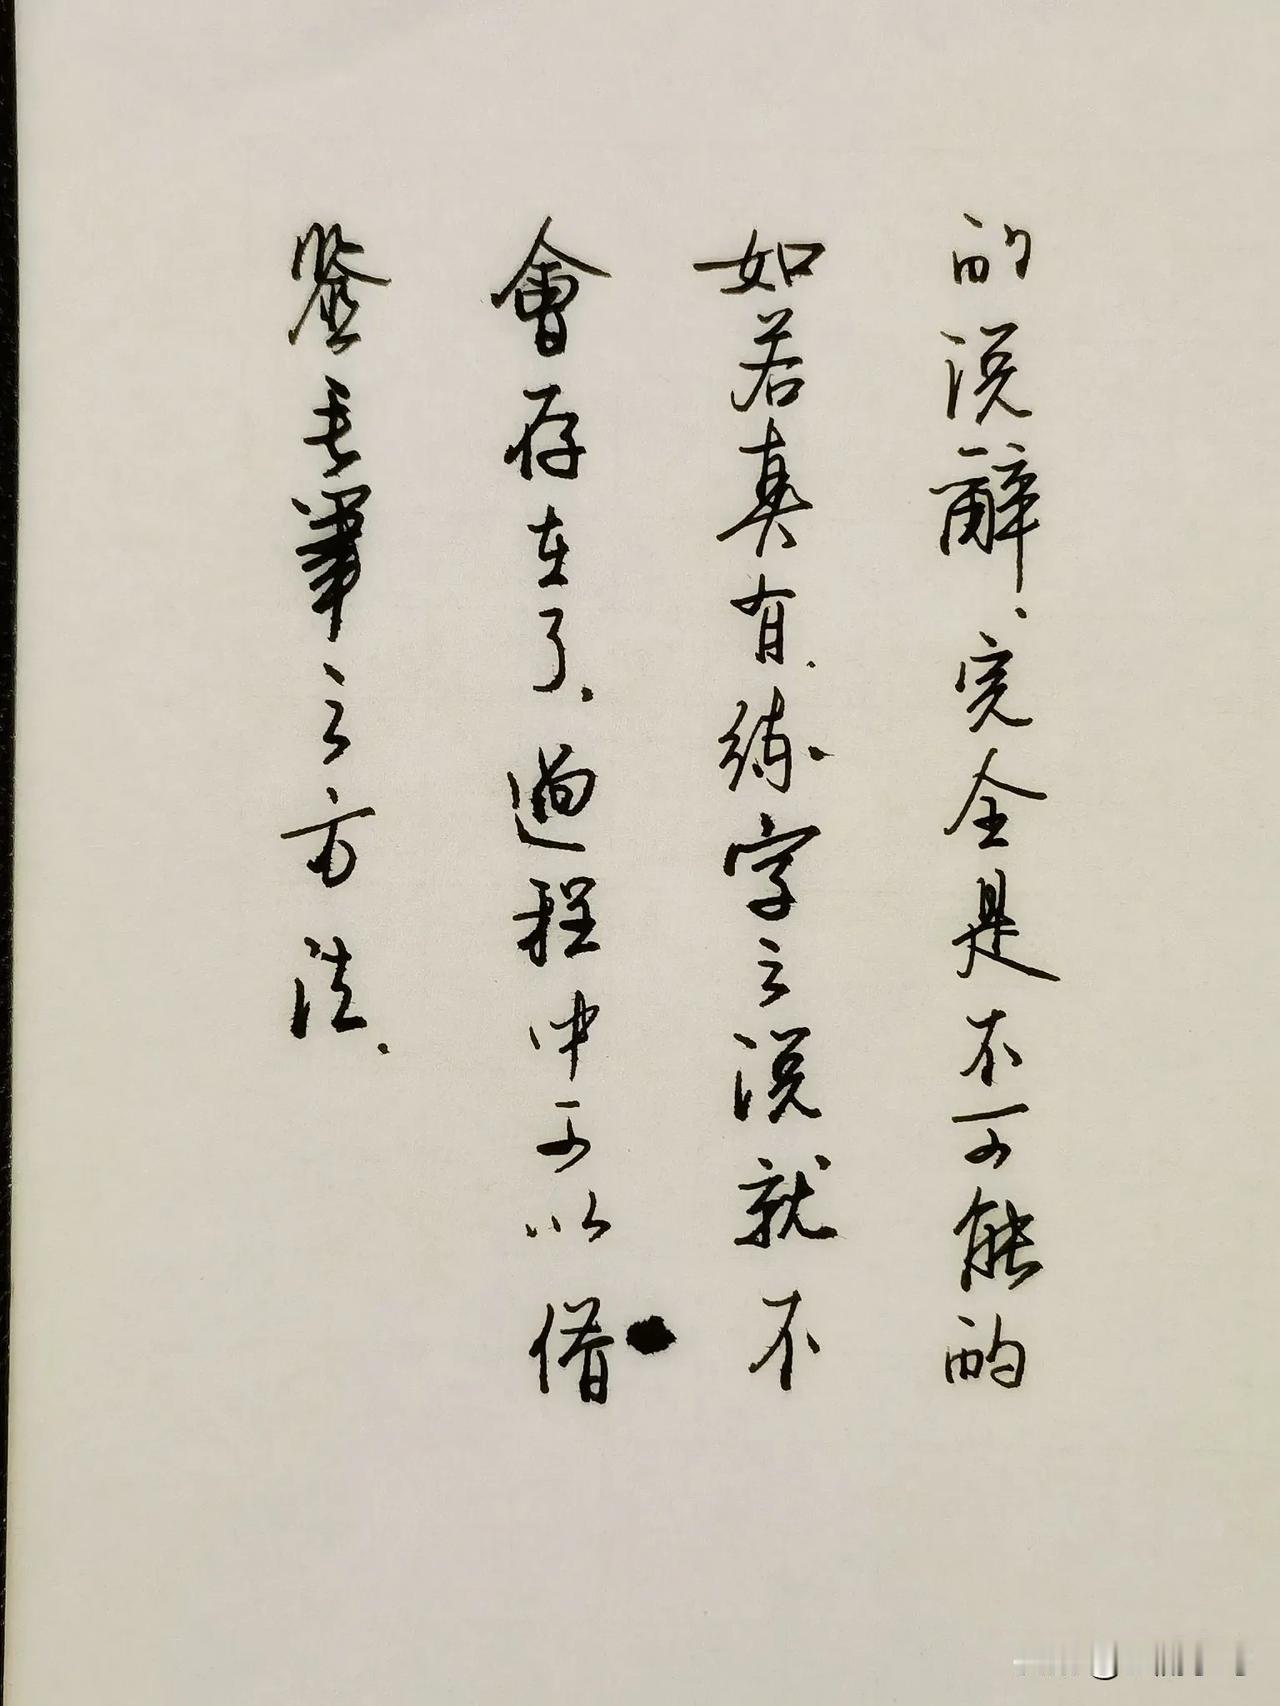 的说辭、完全是不可能的
如若真有、练字之说就不
會存在了、過程中可以借
鉴毛筆之方法、